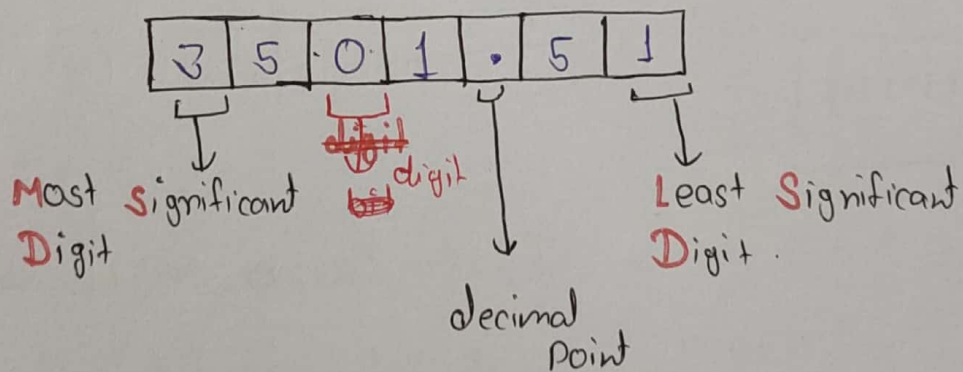 3 5 0 1 . 5 1
digit
Most Significant
Digit
Least Significant
Digit.
decimal
point